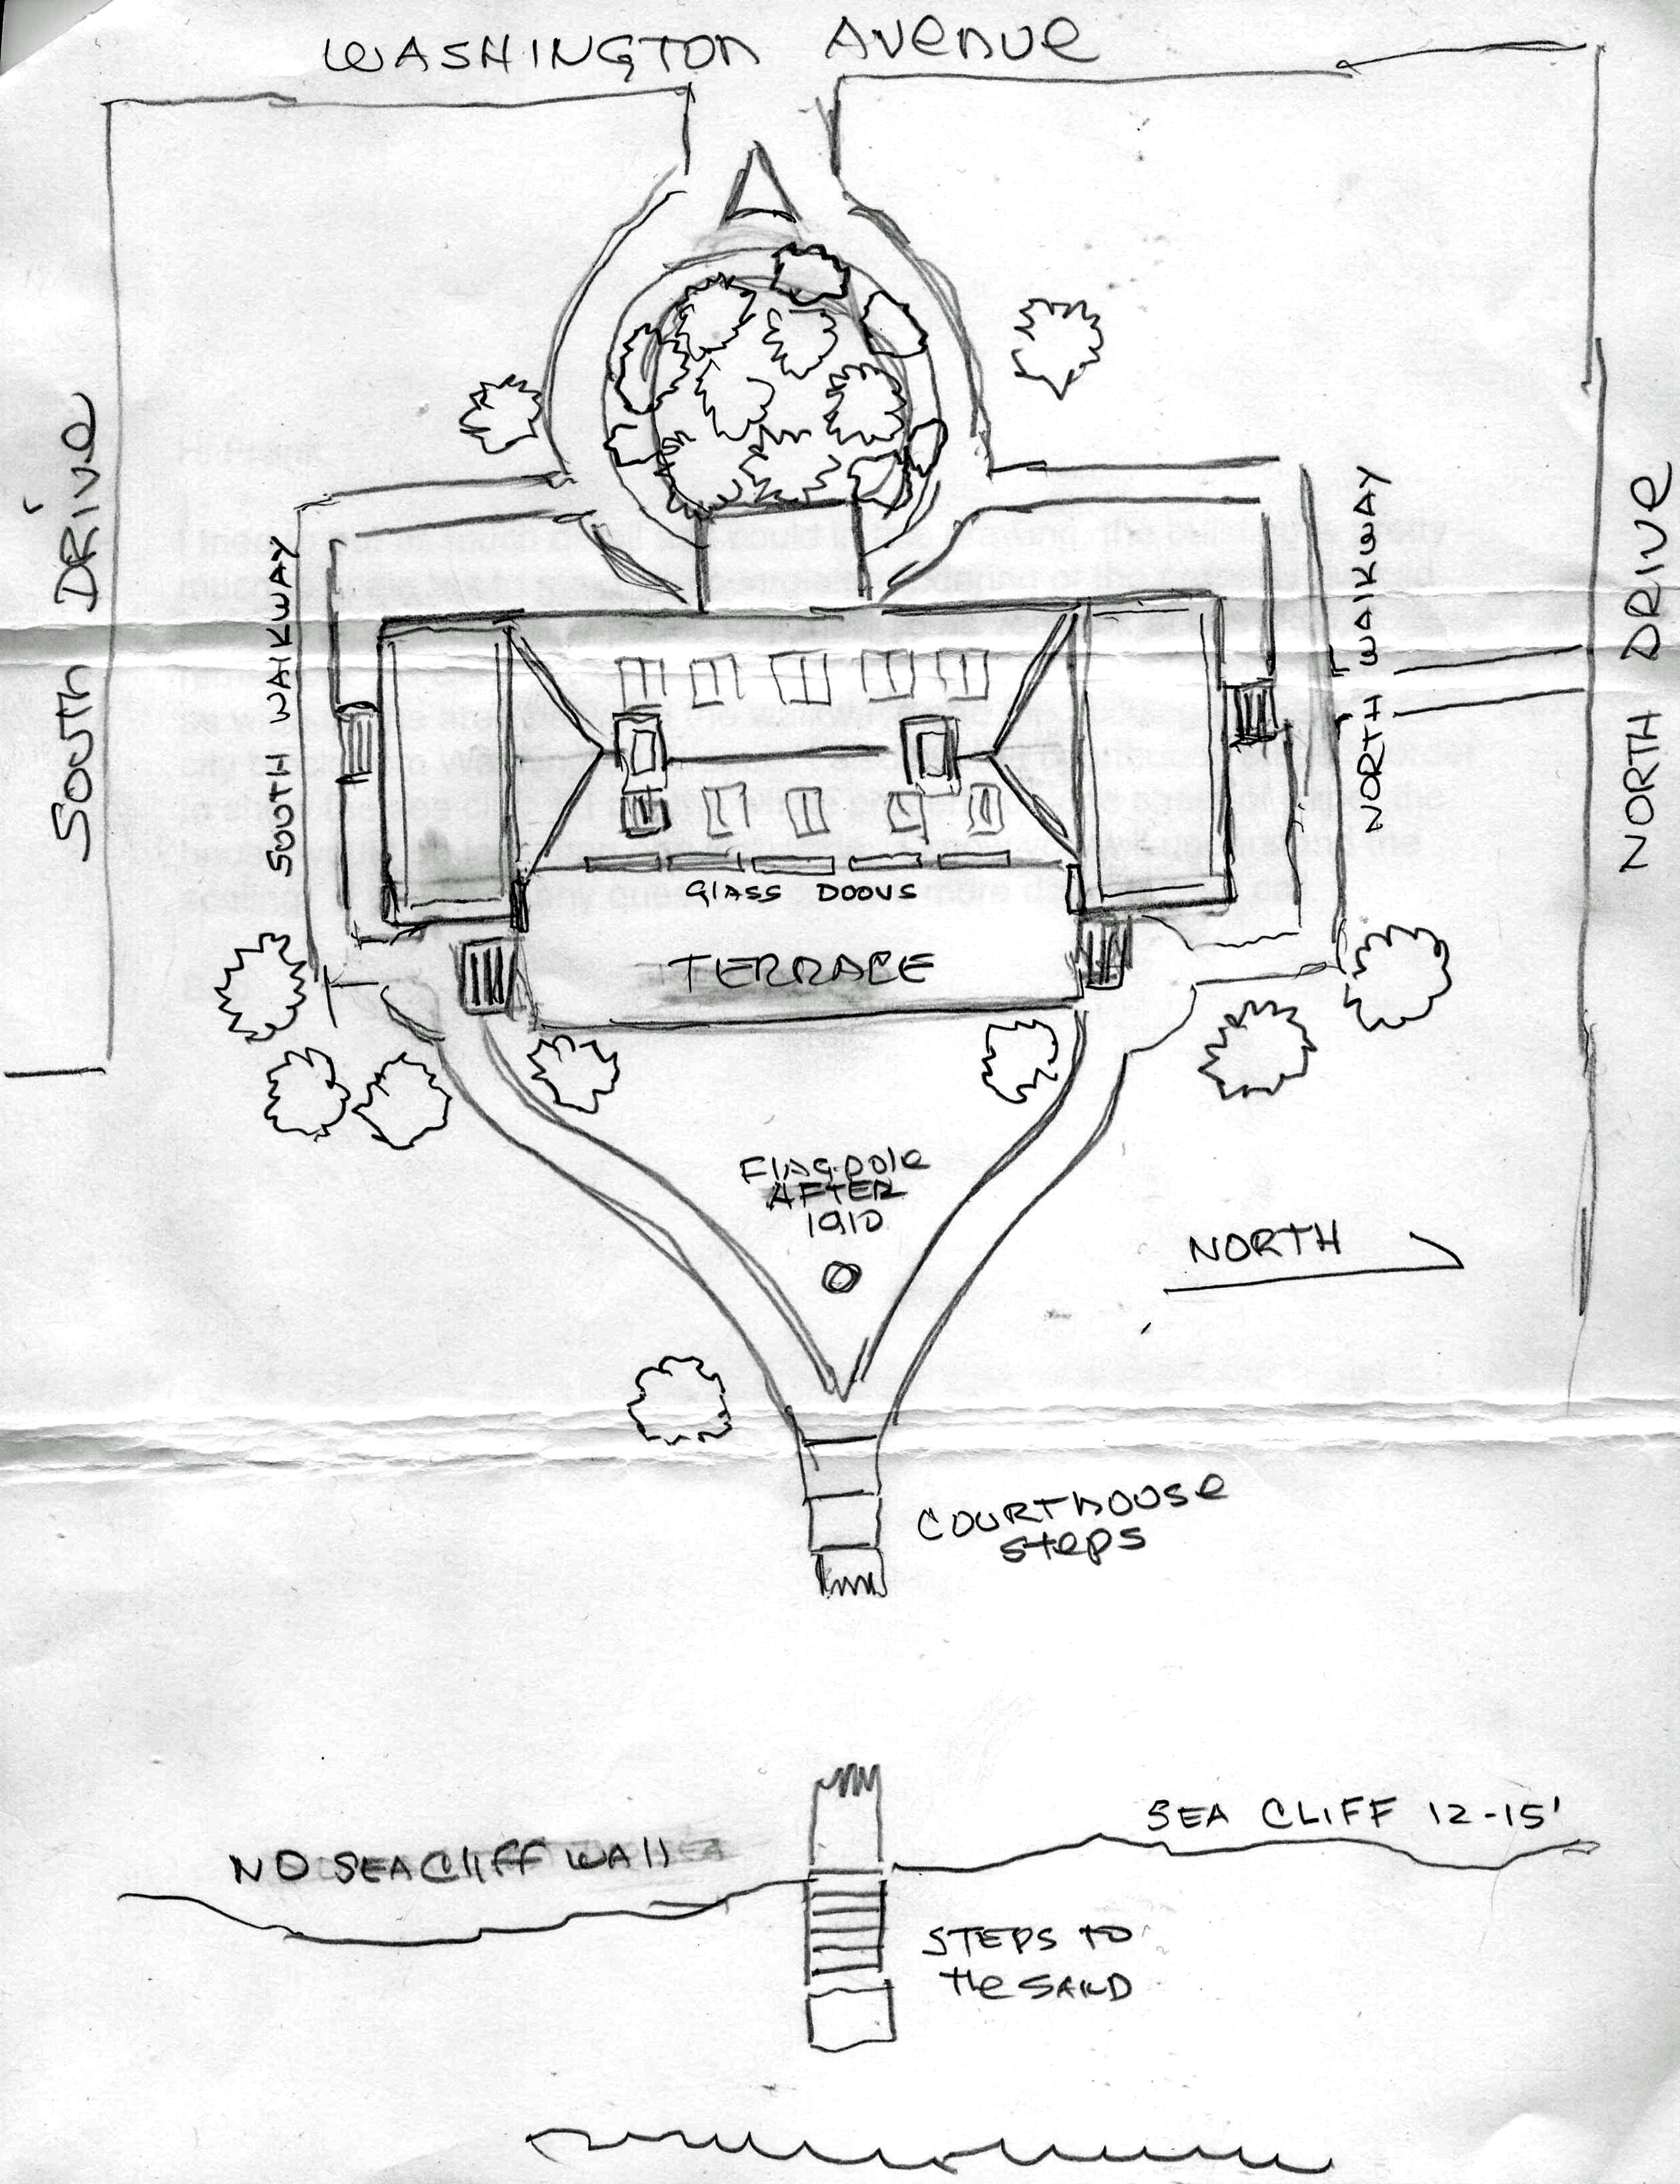 WASHINGTON AVENUE
SOUTH DRIVE
SOUTH WALKWAY
NORTH WALKWAY
NORTH DRIVE
GLASS DOORS
TERRACE
Flagpole
AFTER
1910
NORTH
COURTHOUSE
STEPS
SEA CLIFF 12-15'
NO SEACliff WAll
STEPS TO
the SAND